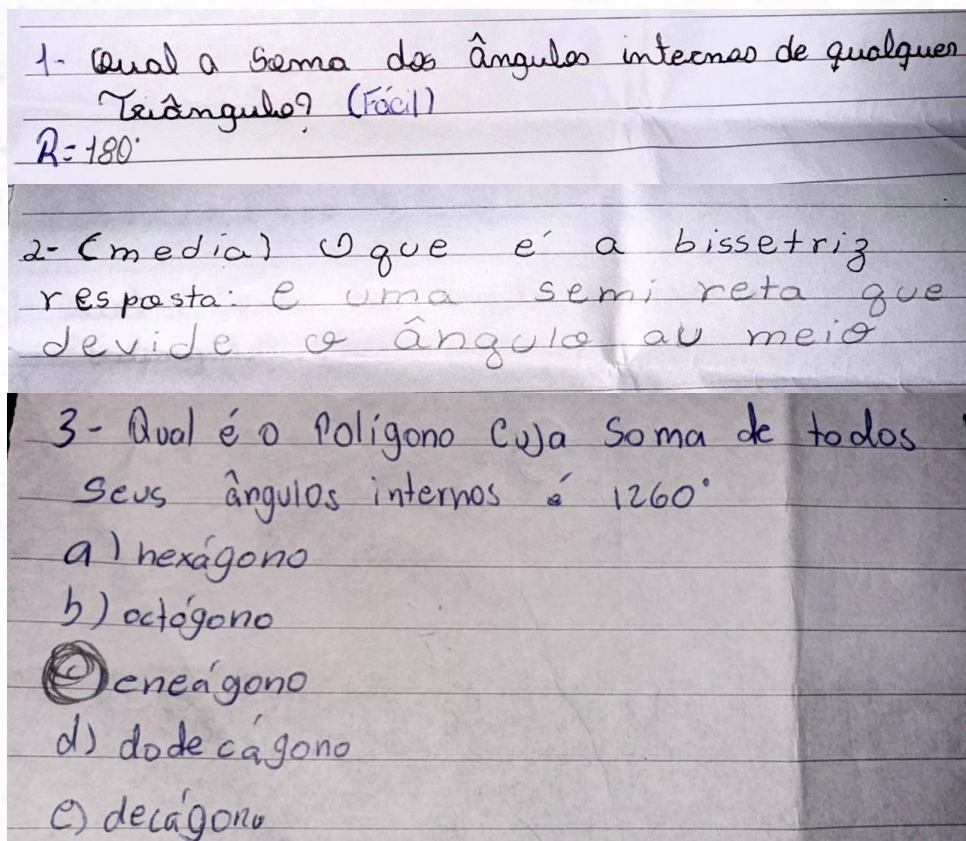 1- Qual a soma dos ângulos internos de qualquer
Triângulo? (Fácil)
R= 180°
2- (media) O que é a bissetriz
resposta: e uma semi reta que
devide o ângulo au meio
3- Qual é o Polígono Cuja Soma de todos
Seus ângulos internos é 1260°
a) hexágono
b) octógono
c) eneágono
d) dodecágono
e) decágono